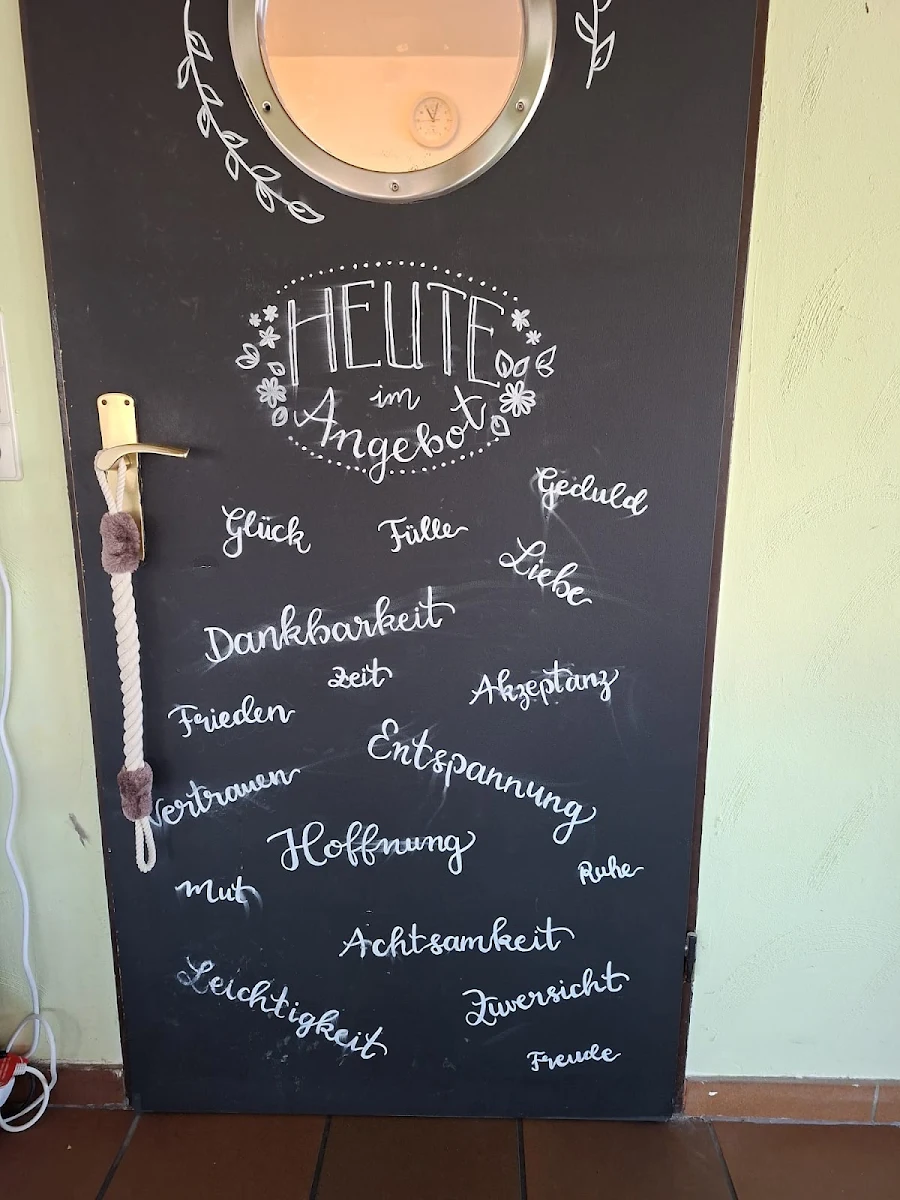 HEUTE
im
Angebot
Geduld
Glück
Fülle
Liebe
Dankbarkeit
Zeit
Akzeptanz
Frieden
Entspannung
Vertrauen
Hoffnung
Ruhe
Mut
Achtsamkeit
Leichtigkeit
Zuversicht
Freude